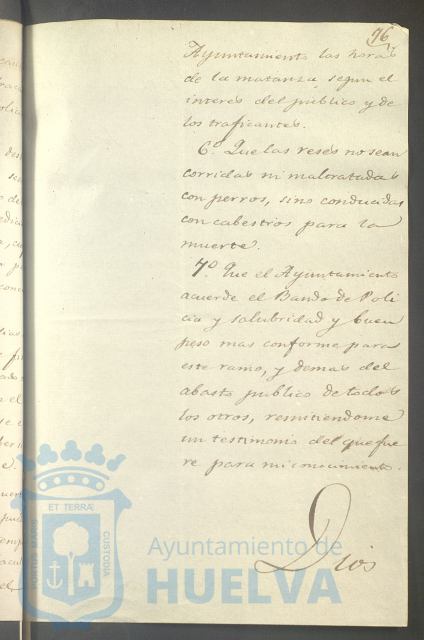 96
Ayuntamiento las horas
de la matanza, segun el
interes del publico y de
los traficantes.
6º Que las reses no sean
corridas ni maltratadas
con perros, sino conducidas
con cabestros para la
muerte.
7º Que el Ayuntamiento
acuerde el Bando de Poli
cia y salubridad y buen
peso mas conforme para
este ramo, y demas del
abasto publico de todos
los otros, remitiendome
un testimonio del que fue
re para mi conocimiento.
Dios
ET TERRÆ
PORTUS MARIS
CUSTODIA
Ayuntamiento de
HUELVA